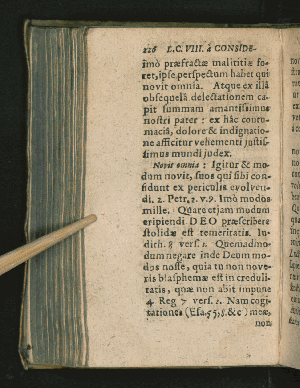 226 L.C. VIII. à CONSIDE-
imò præfractæ malititiæ fo-
ret, ipse perspectum habet qui
novit omnia. Atque ex illâ
obsequelâ delectationem ca-
pit summam amantissimus
nostri pater: ex hâc contu-
maciâ, dolore & indignatio-
ne afficitur vehementi justis-
simus mundi judex.
Novit omnia: Igitur & mo-
dum novit, suos qui sibi con-
fidunt ex periculis evolven-
di. 2. Petr. 2. v. 9. Imò modos
mille. Quare etjam modum
eripiendi DEO præscribere
stolidæ est temeritatis. Iu-
dith. 8 vers. 1. Quemadmo-
dum negare inde Deum mo-
dos nosse, quia tu non nove-
ris blasphemæ est increduli-
tatis, quæ non abit impune
4 Reg 7 vers. 2. Nam cogi-
tationes (Esa. 55, 8. &c) meæ,
non